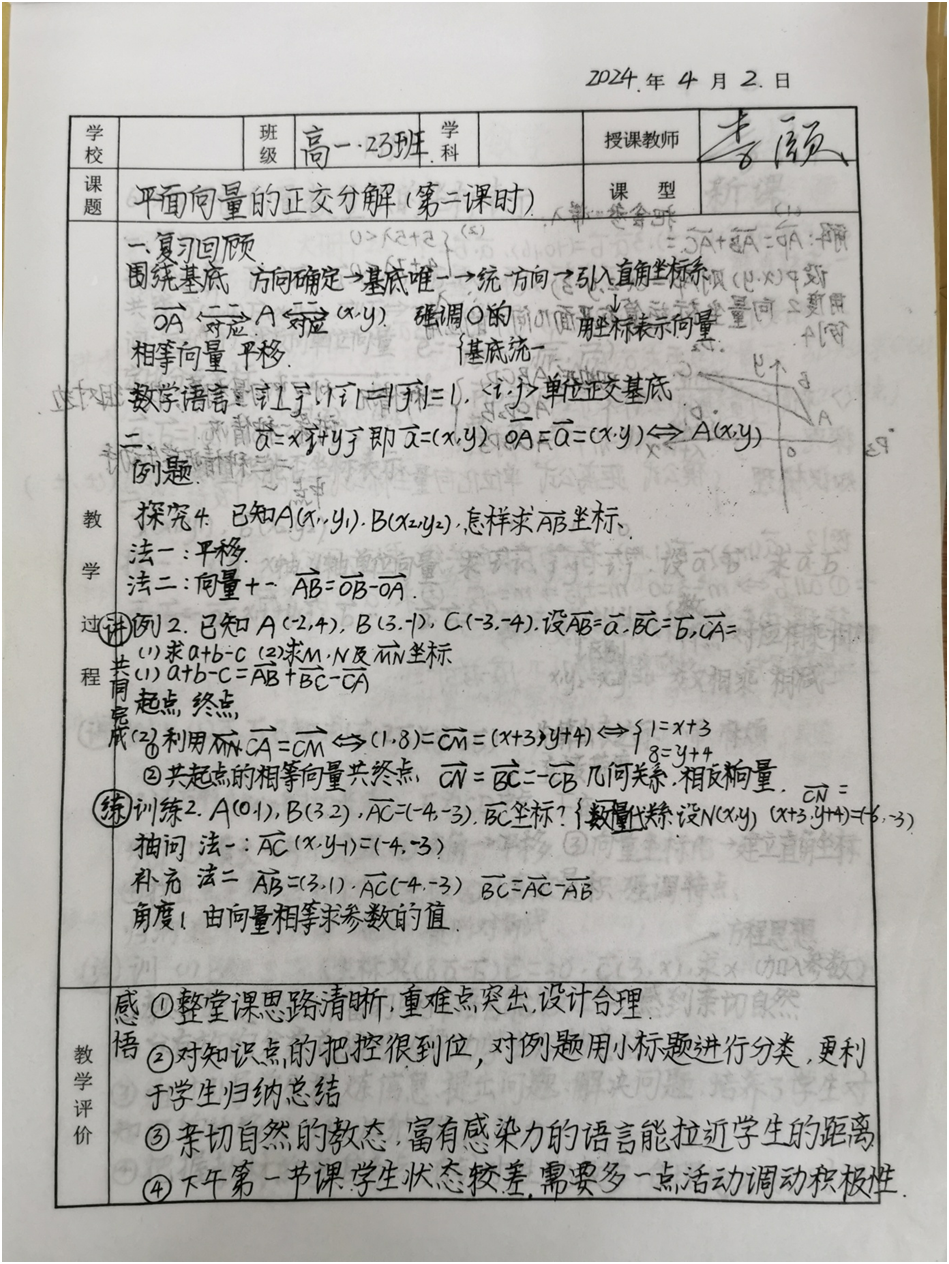 2024.年 4 月 2.日
学校 班级 高一.23班. 学科 授课教师
课题 平面向量的正交分解(第二课时). 课 型
一.复习回顾.
围绕基底 方向确定→基底唯一→统一方向→引入直角坐标系
↓
OA ⟷对应 A ⟷对应 (x,y). 强调O的 用坐标表示向量
相等向量 平移. {基底统一
数学语言: i⊥j, |i|=|j|=1, <i,j>单位正交基底
a=xi+yj 即 a=(x,y) OA=a=(x,y)⟺A(x,y)
二.
例题.
探究4. 已知A(x₁,y₁).B(x₂,y₂),怎样求AB坐标、
法一:平移.
法二:向量+- AB=OB-OA.
讲 例2.已知A(-2,4), B(3,-1), C(-3,-4).设AB=a,BC=b,CA=
(1)求a+b-c (2)求M.N及MN坐标
共同完成 (1) a+b-c=AB+BC-CA
起点,终点,
(2)①利用 CA=CM⟺(1,8)=CM=(x+3,y+4)⟺{1=x+3
8=y+4
②共起点的相等向量共终点. CN=BC=-CB 几何关系.相反向量.
CN=
练 训练2. A(0,1), B(3,2), AC=(-4,-3), BC坐标? {数量代关系:设N(x,y) (x+3,y+4)=(-6,-3)
抽问 法一:AC(x,y-1)=(-4,-3)
补充 法二 AB=(3,1).AC(-4,-3) BC=AC-AB
角度1.由向量相等求参数的值.
教学过程
教学评价
感悟
①整堂课思路清晰,重难点突出,设计合理.
②对知识点的把控很到位,对例题用小标题进行分类,更利
于学生归纳总结
③亲切自然的教态,富有感染力的语言能拉近学生的距离
④下午第一节课,学生状态较差,需要多一点活动调动积极性.